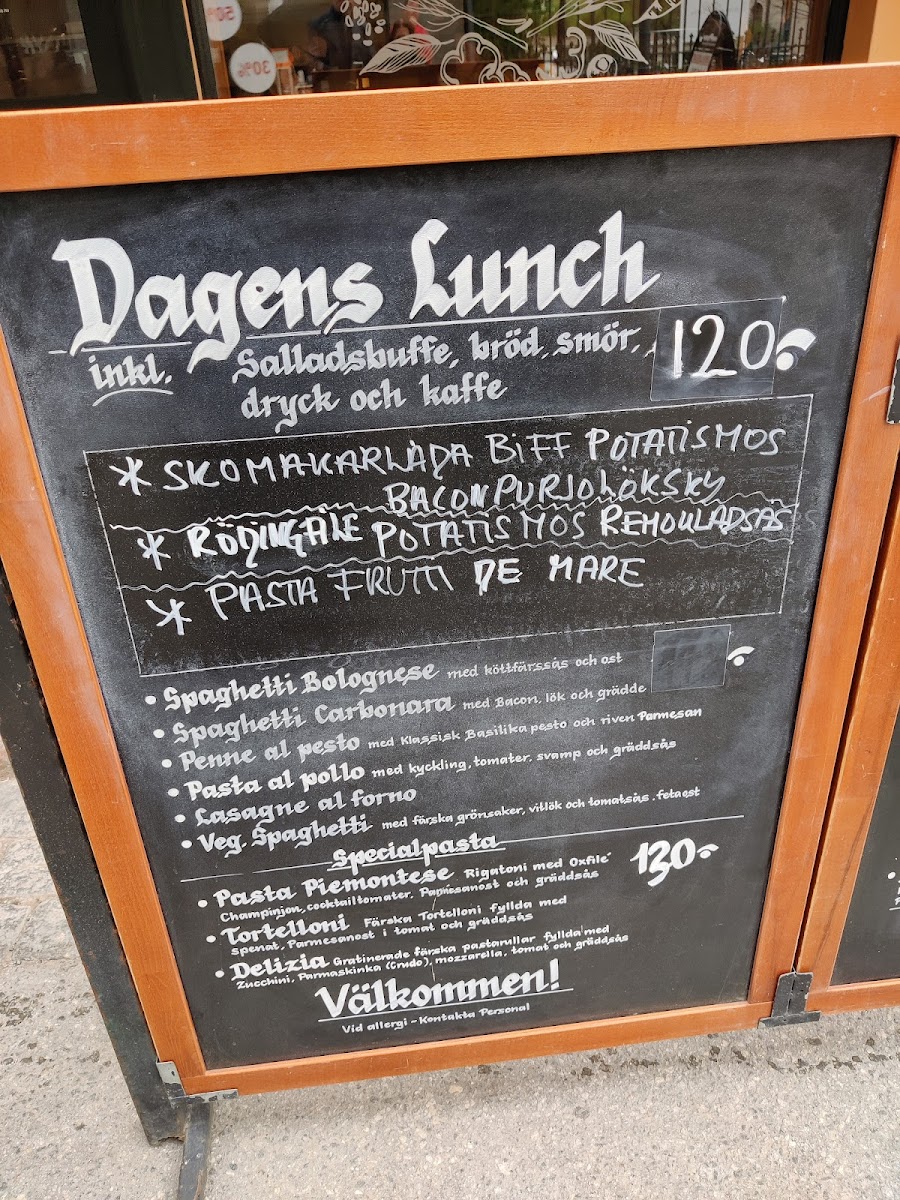 50%
30%
Dagens Lunch
inkl. Salladsbuffe, bröd, smör, 120:-
dryck och kaffe
* SKOMAKARLÅDA BIFF POTATISMOS
BACON PURJOLÖKSKY
* RÖDINGFILE POTATISMOS REMOULADSÅS
* PASTA FRUTTI DE MARE
• Spaghetti Bolognese med köttfärssås och ost
• Spaghetti Carbonara med Bacon, lök och grädde
• Penne al pesto med Klassisk Basilika pesto och riven Parmesan
• Pasta al pollo med kyckling, tomater, svamp och gräddsås
• Lasagne al forno
• Veg. Spaghetti med färska grönsaker, vitlök och tomatsås. fetaost
Specialpasta
• Pasta Piemontese Rigatoni med Oxfilé 130:-
Champinjon, cocktailtomater, Parmesanost och gräddsås
• Tortelloni Färska Tortelloni fyllda med
spenat, Parmesanost i tomat och gräddsås
• Delizia Gratinerade färska pastarullar fyllda med
Zucchini, Parmaskinka (Crudo), mozzarella, tomat och gräddsås
Välkommen!
Vid allergi - Kontakta Personal